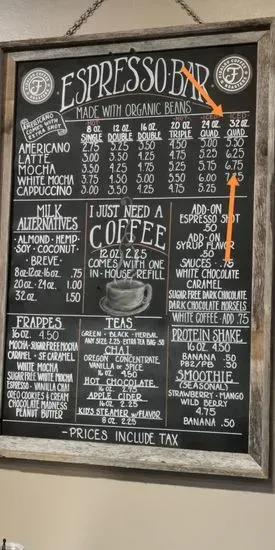 ESPRESSO·BAR
MADE WITH ORGANIC BEANS
AMERICANO
COMES WITH
EXTRA SHOT
8 oz. 12 oz. 16 oz. 20 oz. 24 oz. 32 oz.
SINGLE DOUBLE DOUBLE TRIPLE QUAD QUAD
AMERICANO 3.25 3.50 4.50 5.00 5.50
LATTE 3.00 3.50 4.25 4.75 5.25 6.25
MOCHA 3.50 4.75 5.25 5.75 6.75
WHITE MOCHA 3.75 4.50 5.00 5.50 6.50
CAPPUCCINO 3.00 3.50 4.25 4.75 5.25
MILK
ALTERNATIVES
·ALMOND·HEMP·
·SOY·COCONUT·
·BREVE·
8oz-12oz-16oz .75
20oz-24oz 1.00
32oz 1.50
I JUST NEED A
COFFEE
12 oz 2.25
COMES WITH ONE
IN-HOUSE REFILL
ADD-ON
ESPRESSO SHOT
.50
ADD-ON
SYRUP FLAVOR
.50
SAUCES .75
WHITE CHOCOLATE
CARAMEL
SUGAR FREE DARK CHOCOLATE
DARK CHOCOLATE MORSELS
WHITE COFFEE-ADD .75
FRAPPES
16 oz 4.50
MOCHA·SUGAR FREE MOCHA
CARAMEL·SF CARAMEL
WHITE MOCHA
SUGAR FREE WHITE MOCHA
ESPRESSO·VANILLA CHAI
OREO COOKIES & CREAM
CHOCOLATE MADNESS
PEANUT BUTTER
TEAS
GREEN·BLACK·HERBAL
EXTRA TEA BAG .50
CHAI
OREGON CONCENTRATE
VANILLA OR SPICE
16 oz 4.50
HOT CHOCOLATE
16 oz 2.75
APPLE CIDER
16 oz 2.25
KID'S STEAMER w/FLAVOR
8 oz 2.25
PROTEIN SHAKE
16 oz 4.50
BANANA .50
PB2/PB .50
SMOOTHIE
(SEASONAL)
STRAWBERRY·MANGO
WILD BERRY
4.75
BANANA .50
-PRICES INCLUDE TAX